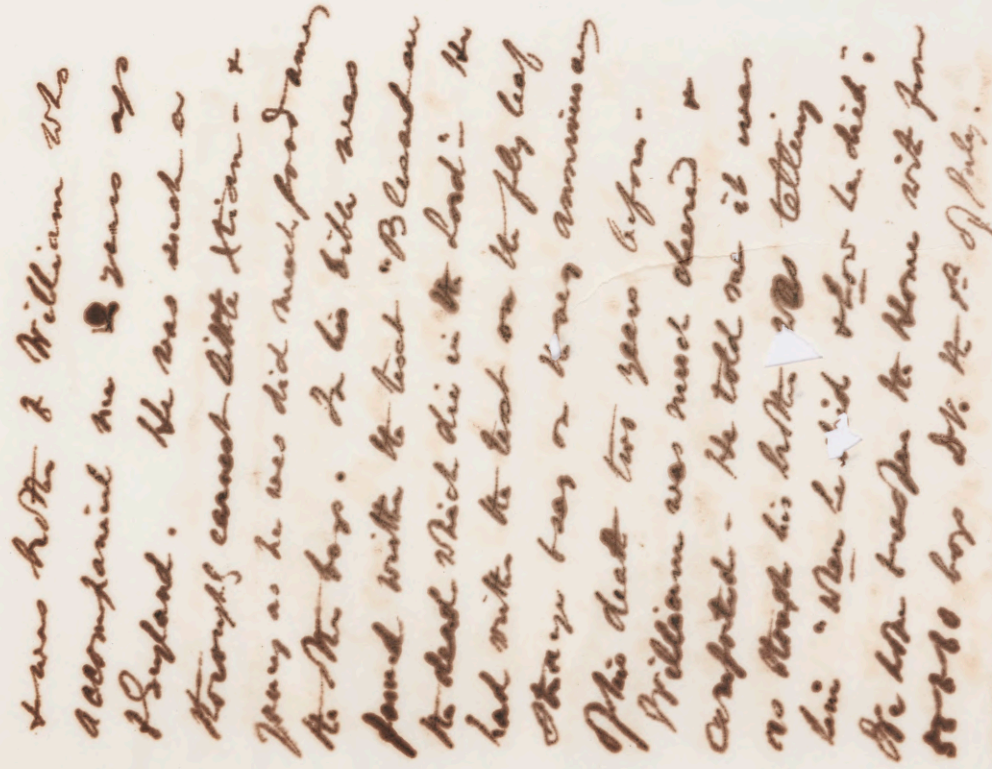 & was brother of William who
accompanied me years ago
to England. He was such a
thoroughly earnest little Xtian - &
young as he was did much good among
the other boys. In his bible was
found with the text "Blessed are
the dead which die in the Lord - He
had written the text on the fly leaf
Strange to say on the very anniversary
of his death two years before.
William was much cheered &
comforted - He told me it was
as though his brother was telling
him "When he died & how he died".
the Home with from
boys Dr. the of July.